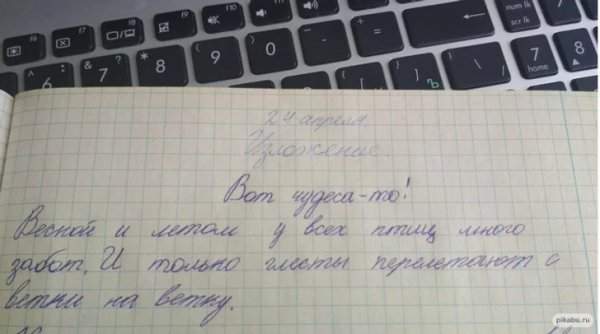 F6 F7 F8 F9 F10 F11 F12
num lk
scr lk
^ 6 & 7 * 8 ( 9 ) 0 - + = 7 8
{ [ } ] Ъ
24 апреля.
Изложение.
Вот чудеса-то!
Весной и летом у всех птиц много
забот. И только глисты перелетают с
ветки на ветку.
pikabu.ru